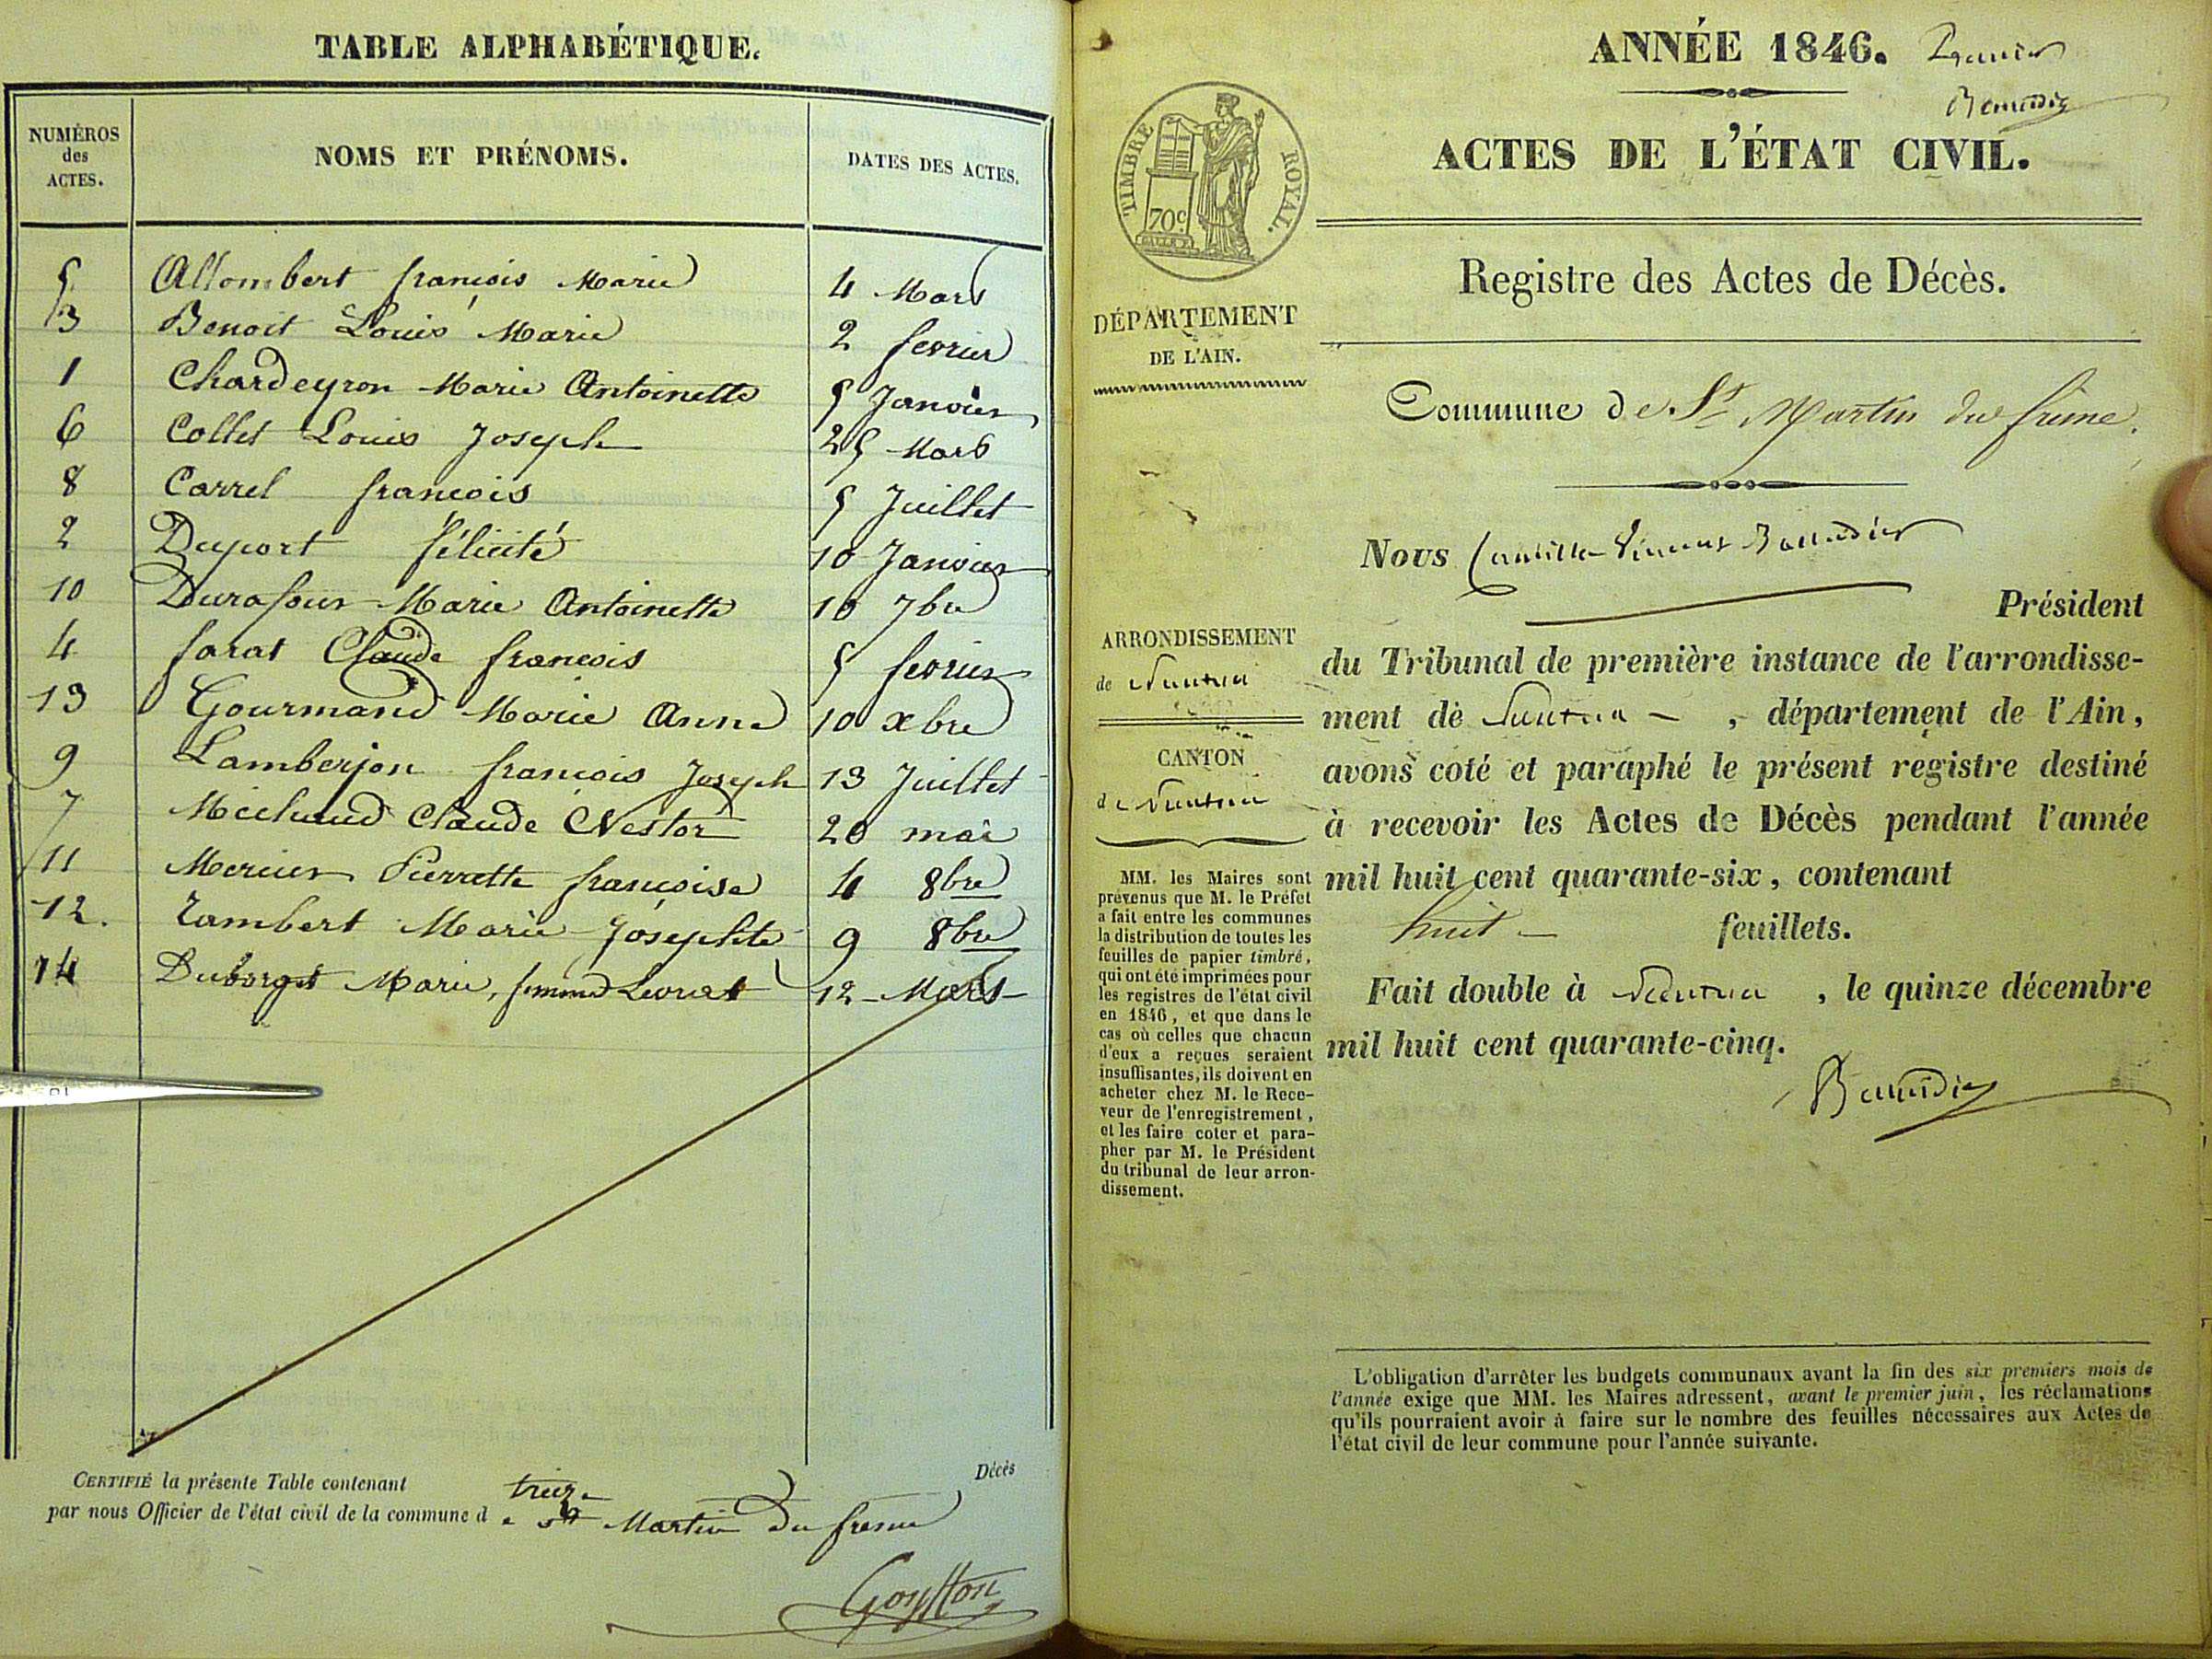 TABLE ALPHABÉTIQUE.
NUMÉROS des ACTES. NOMS ET PRÉNOMS. DATES DES ACTES.
5 Allombert françois Marie 4 Mars
3 Benoit Louis Marie 2 fevrier
1 Chardeyron Marie Antoinette 5 Janvier
6 Collet Louis Joseph 25 Mars
8 Carrel francois 5 Juillet
2 Duport félicité 10 Janvier
10 Durafour Marie Antoinette 10 7bre
4 farat Claude francois 5 fevrier
13 Gourmand Marie Anne 10 xbre
9 Lamberjon francois Joseph 13 Juillet
7 Michaud Claude Nestor 20 mai
11 Mercier Pierrette françoise 4 8bre
12. Rambert Marie Josephte 9 8bre
14 Duborget Marie, femme Levrat 12 Mars
CERTIFIÉ la présente Table contenant treize Décès
par nous Officier de l'état civil de la commune d e St Martin du fresne
ANNÉE 1846. Premier
ACTES DE L'ÉTAT CIVIL.
TIMBRE ROYAL.
70c
Registre des Actes de Décès.
DÉPARTEMENT
DE L'AIN.
Commune de St Martin du frêne.
Nous Camille Vincent
Président
ARRONDISSEMENT
de Nantua
CANTON
de Nantua
du Tribunal de première instance de l'arrondisse-
ment de Nantua , département de l'Ain,
avons coté et paraphé le présent registre destiné
à recevoir les Actes de Décès pendant l'année
mil huit cent quarante-six, contenant
huit feuillets.
Fait double à Nantua , le quinze décembre
mil huit cent quarante-cinq.
MM. les Maires sont
prévenus que M. le Préfet
a fait entre les communes
la distribution de toutes les
feuilles de papier timbré,
qui ont été imprimées pour
les registres de l'état civil
en 1846, et que dans le
cas où celles que chacun
d'eux a reçues seraient
insuffisantes, ils doivent en
acheter chez M. le Rece-
veur de l'enregistrement,
et les faire coter et para-
pher par M. le Président
du tribunal de leur arron-
dissement.
L'obligation d'arrêter les budgets communaux avant la fin des six premiers mois de
l'année exige que MM. les Maires adressent, avant le premier juin, les réclamations
qu'ils pourraient avoir à faire sur le nombre des feuilles nécessaires aux Actes de
l'état civil de leur commune pour l'année suivante.